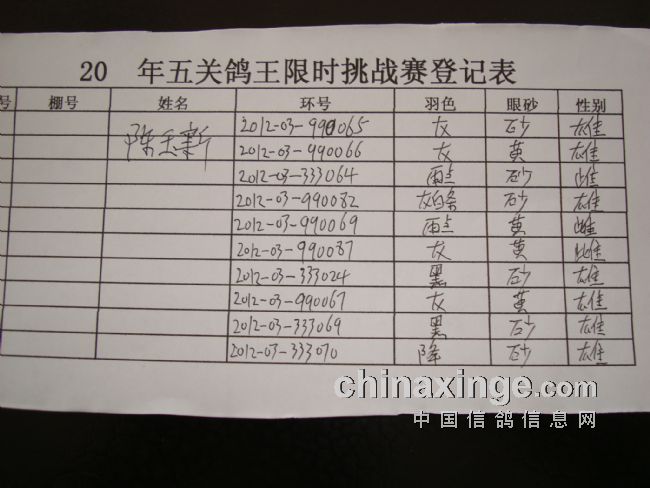 20 年五关鸽王限时挑战赛登记表
号 棚号 姓名 环号 羽色 眼砂 性别
陈玉新 2012-03-990065 灰 砂 雄
2012-03-990066 灰 黄 雄
2012-03-333064 雨点 砂 雌
2012-03-990082 灰白条 砂 雄
2012-03-990069 雨点 黄 雌
2012-03-990087 灰 黄 雌
2012-03-333024 黑 砂 雄
2012-03-990067 灰 黄 雄
2012-03-333069 黑 砂 雄
2012-03-333070 绛 砂 雄
chinaxinge.com
中国信鸽信息网